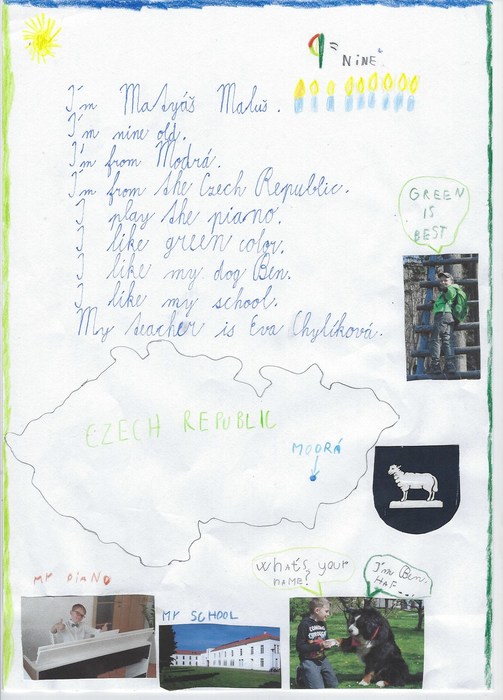 9 = NINE.
I'm Matyáš Maluš.
I'm nine old.
I'm from Modrá.
I'm from the Czech Republic.
I play the piano.
I like green color.
I like my dog Ben.
I like my school.
My teacher is Eva Chylíková.
GREEN
IS
BEST
CZECH REPUBLIC
MODRÁ
What's your
name?
I'm Ben.
HAF...
MY PIANO
MY SCHOOL